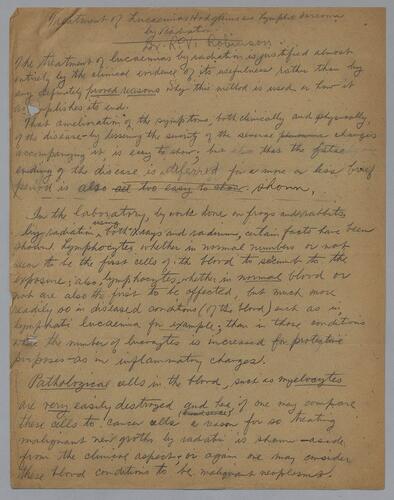 Treatment of Lucaemias Hodgkins and Lymphic Sarcoma
by Radiation
Dr. R.V. Robinson.
The treatment of lucaemias by radiation is justified almost
entirely by the clinical evidence of its usefulness rather than by
any definitely proved reasons why this method is used, or how it
accomplishes its end.
That amelioration of the symptoms, both clinically and physically,
of the disease by lessening the severity of the several changes
accompanying it, is easy to show; but also that the fatal
ending of the disease is deferred for a more or less brief
period is also not too easy to show. shown.
In the laboratory, by work done on frogs and rabbits,
by radiation, using both Xrays and radium, certain facts have been
shown. Lymphocytes whether in normal numbers or not
seem to be the first cells of the blood to succumb to the
exposure; also, lymphocytes, whether in normal blood or
not are also the first to be affected, but much more
readily so in diseased conditions (of the blood) such as in
lymphatic lucaemia for example; than in those conditions
when the number of leucocytes is increased for protective
purposes as in inflammatory changes.
Pathological cells in the blood, such as myelocytes
are very easily destroyed, and here, if one may compare
these cells to cancer cells a reason for so treating
malignant new growths by radiation is shown aside
from the clinical aspect; or again one may consider
these blood conditions to be malignant neoplasms.